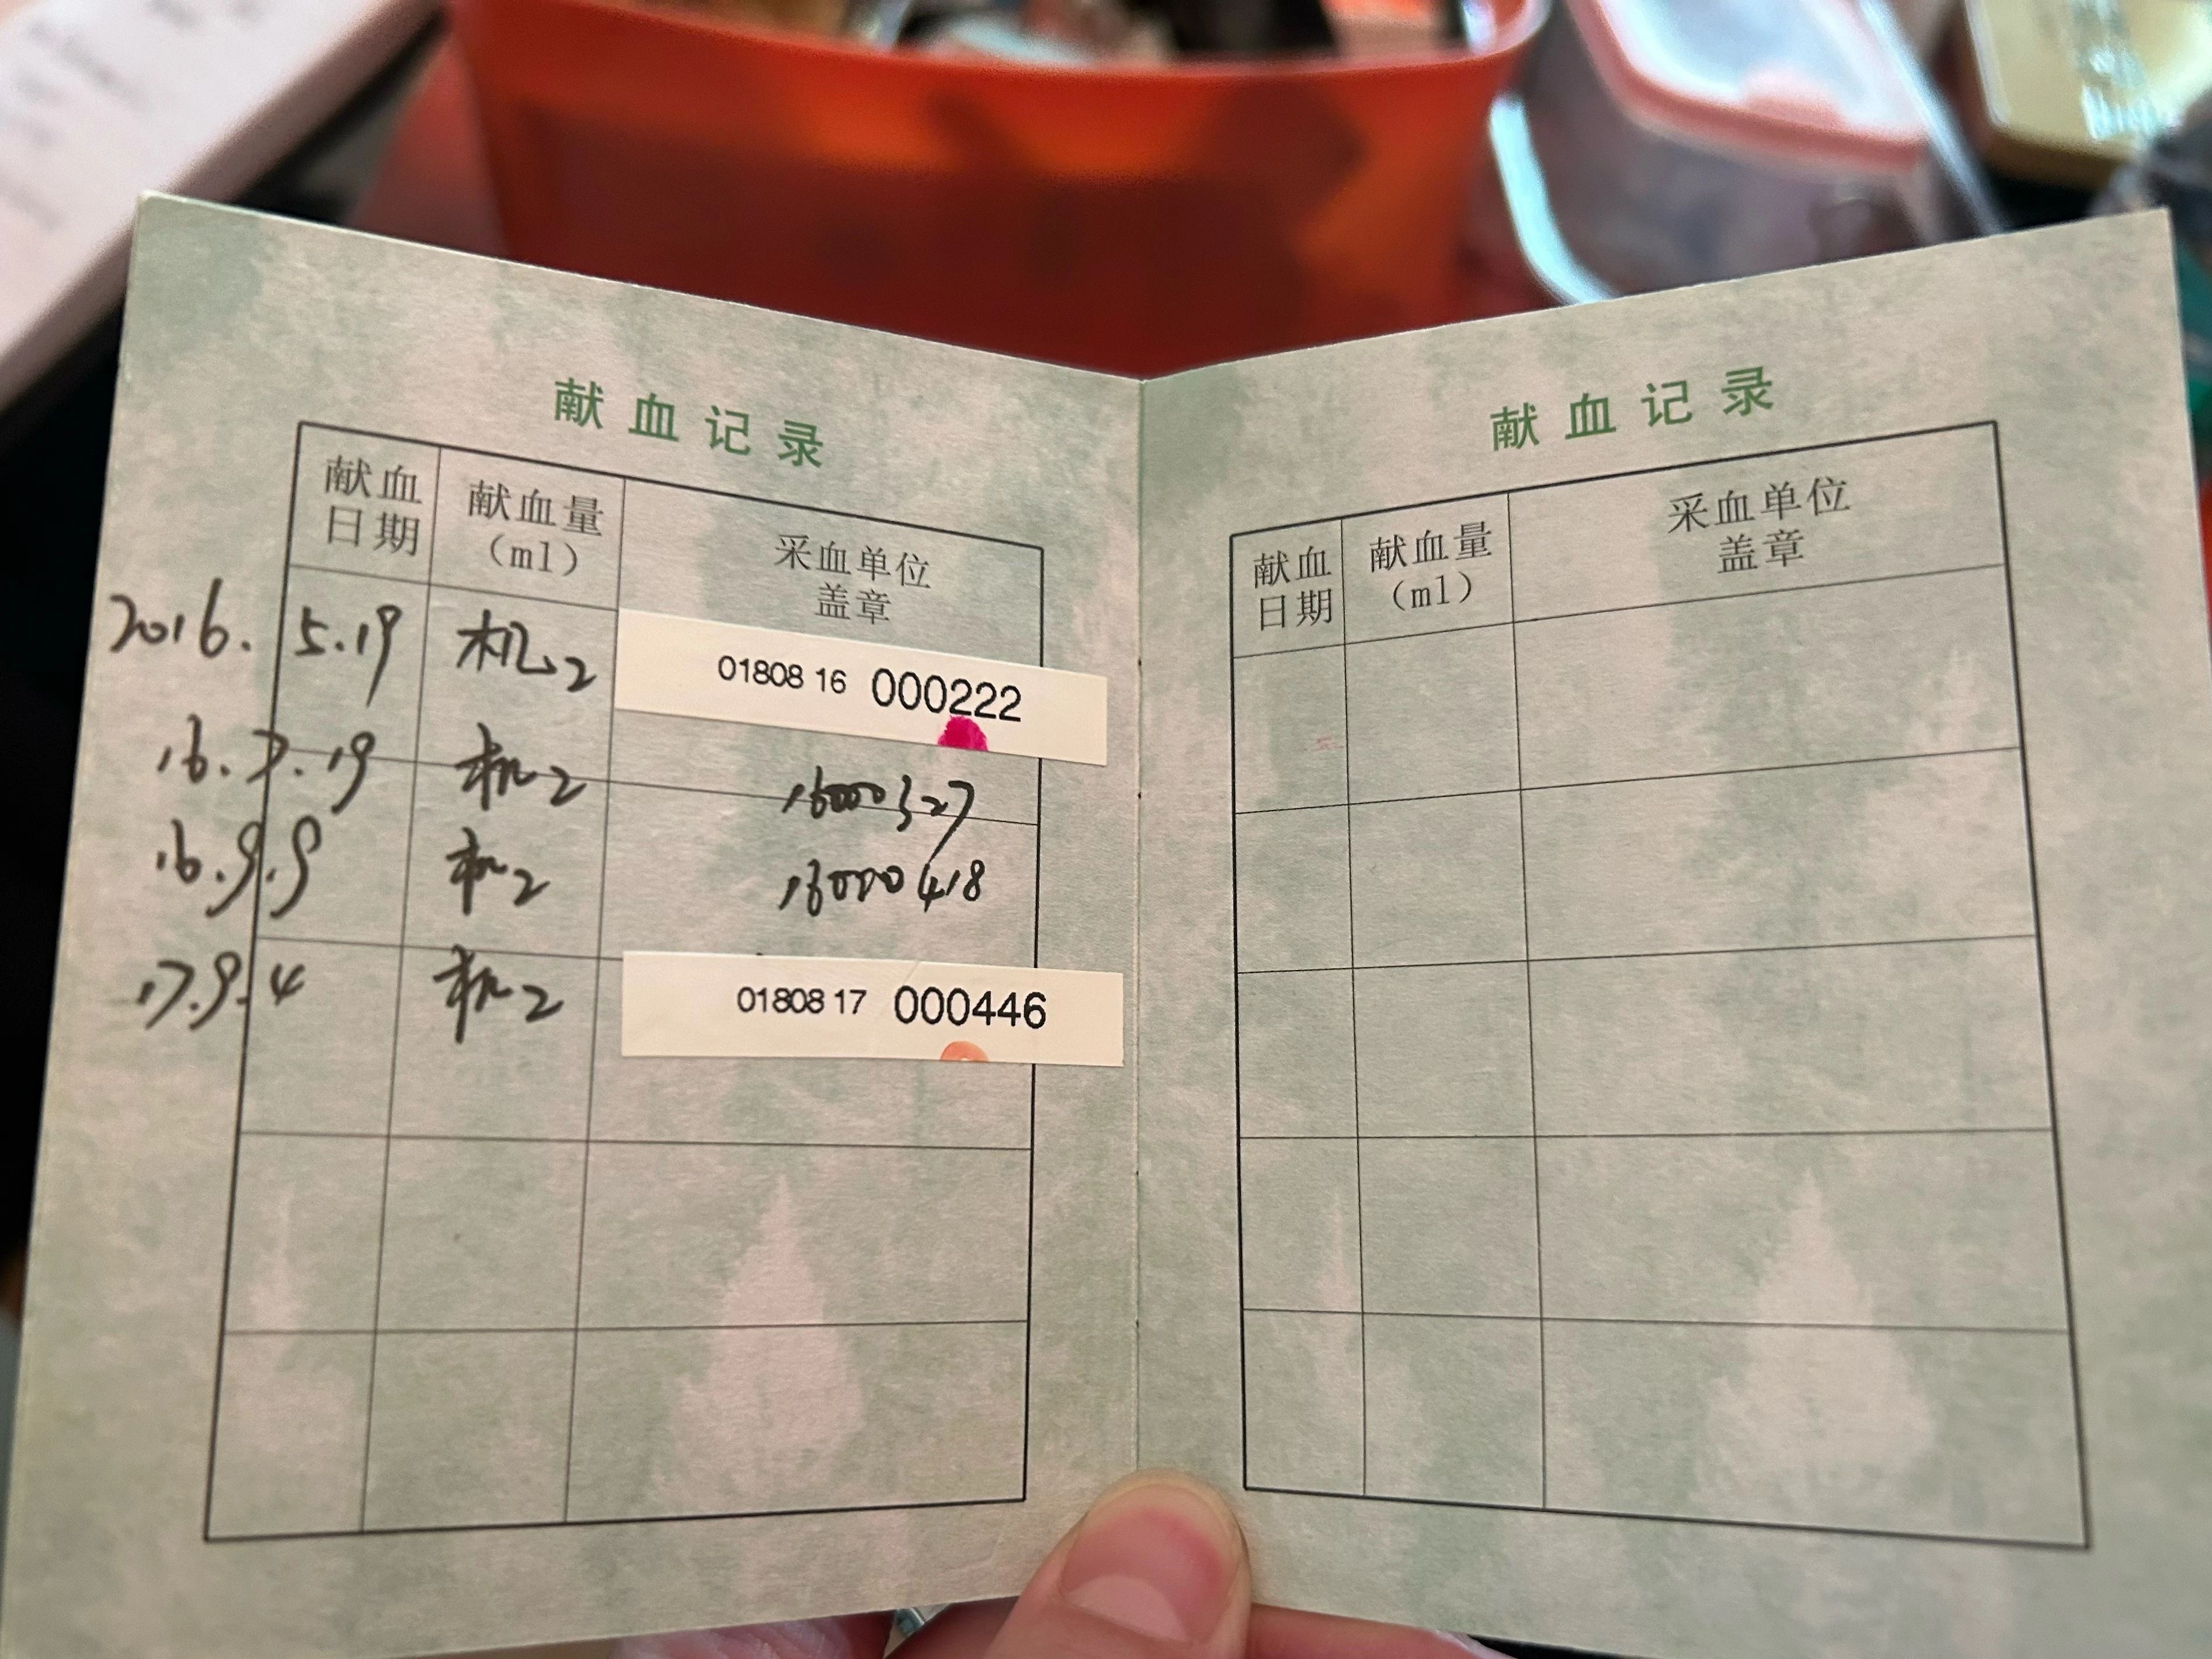 献血记录
献血日期 献血量(ml) 采血单位盖章
2016.5.19 机2 01808 16 000222
16.7.19 机2 16000327
16.9.9 机2 16000418
17.9.4 机2 01808 17 000446
献血记录
献血日期 献血量(ml) 采血单位盖章